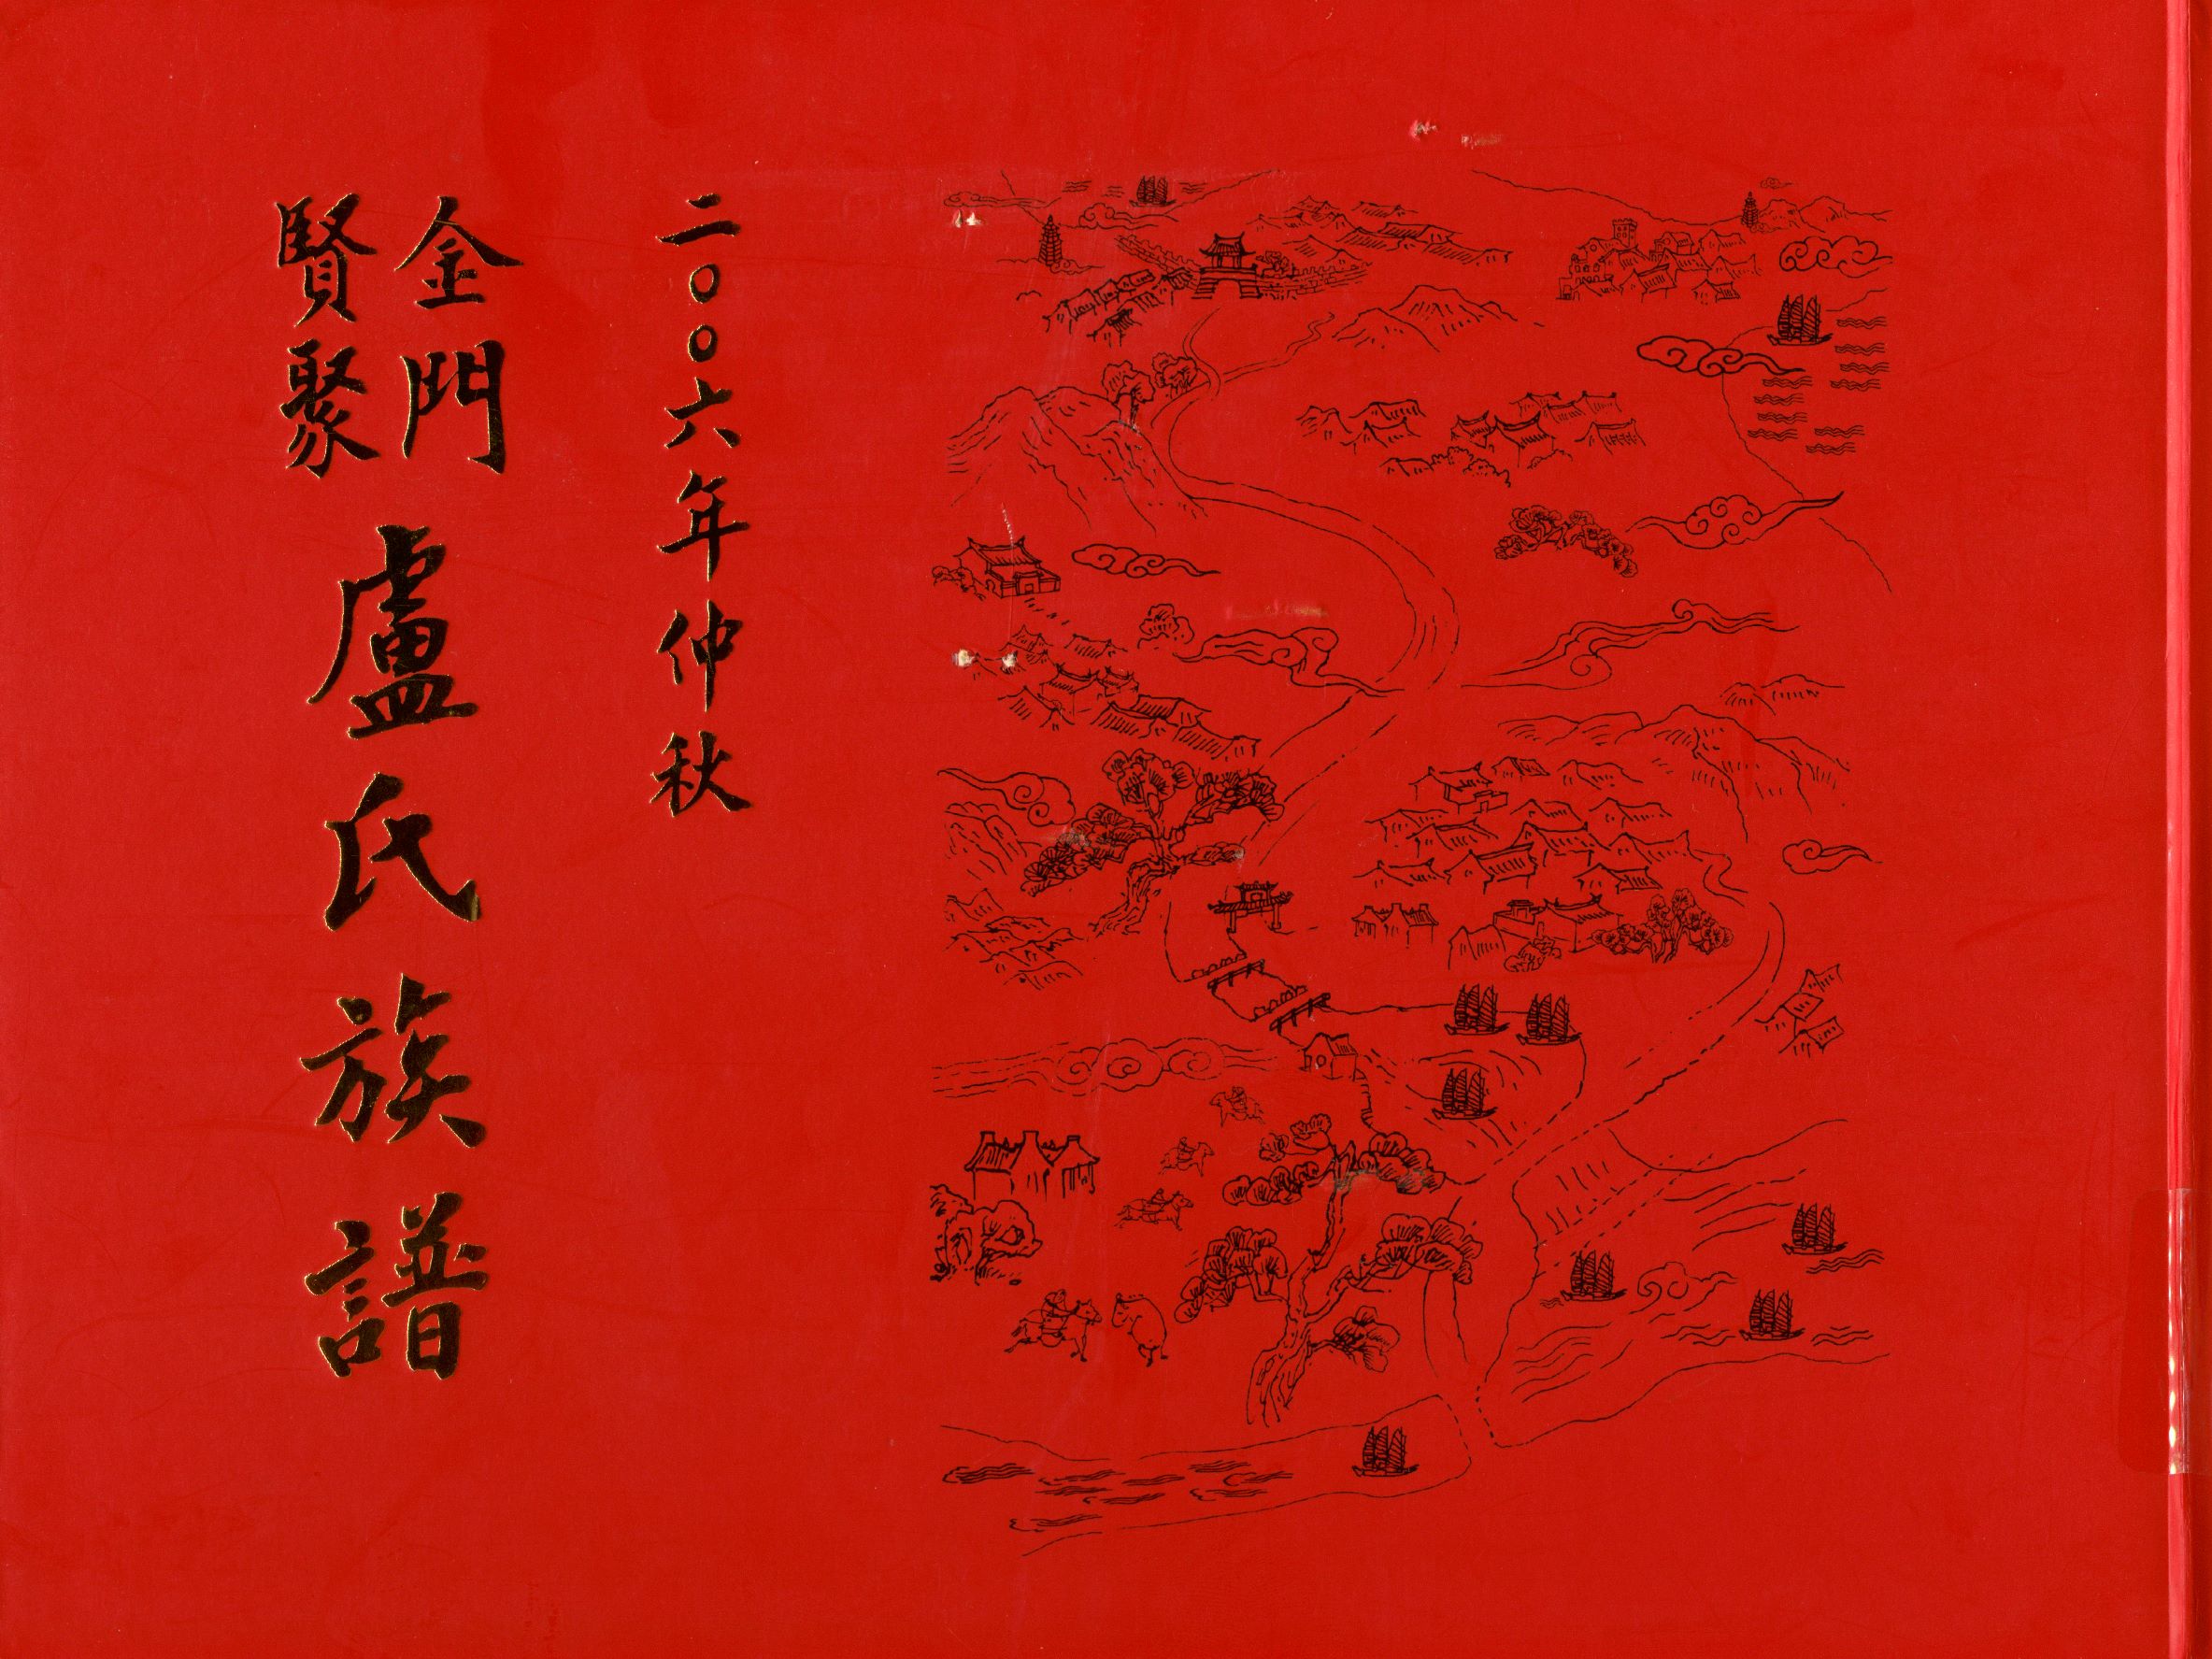 二〇〇六年仲秋
金門
賢聚
盧氏族譜